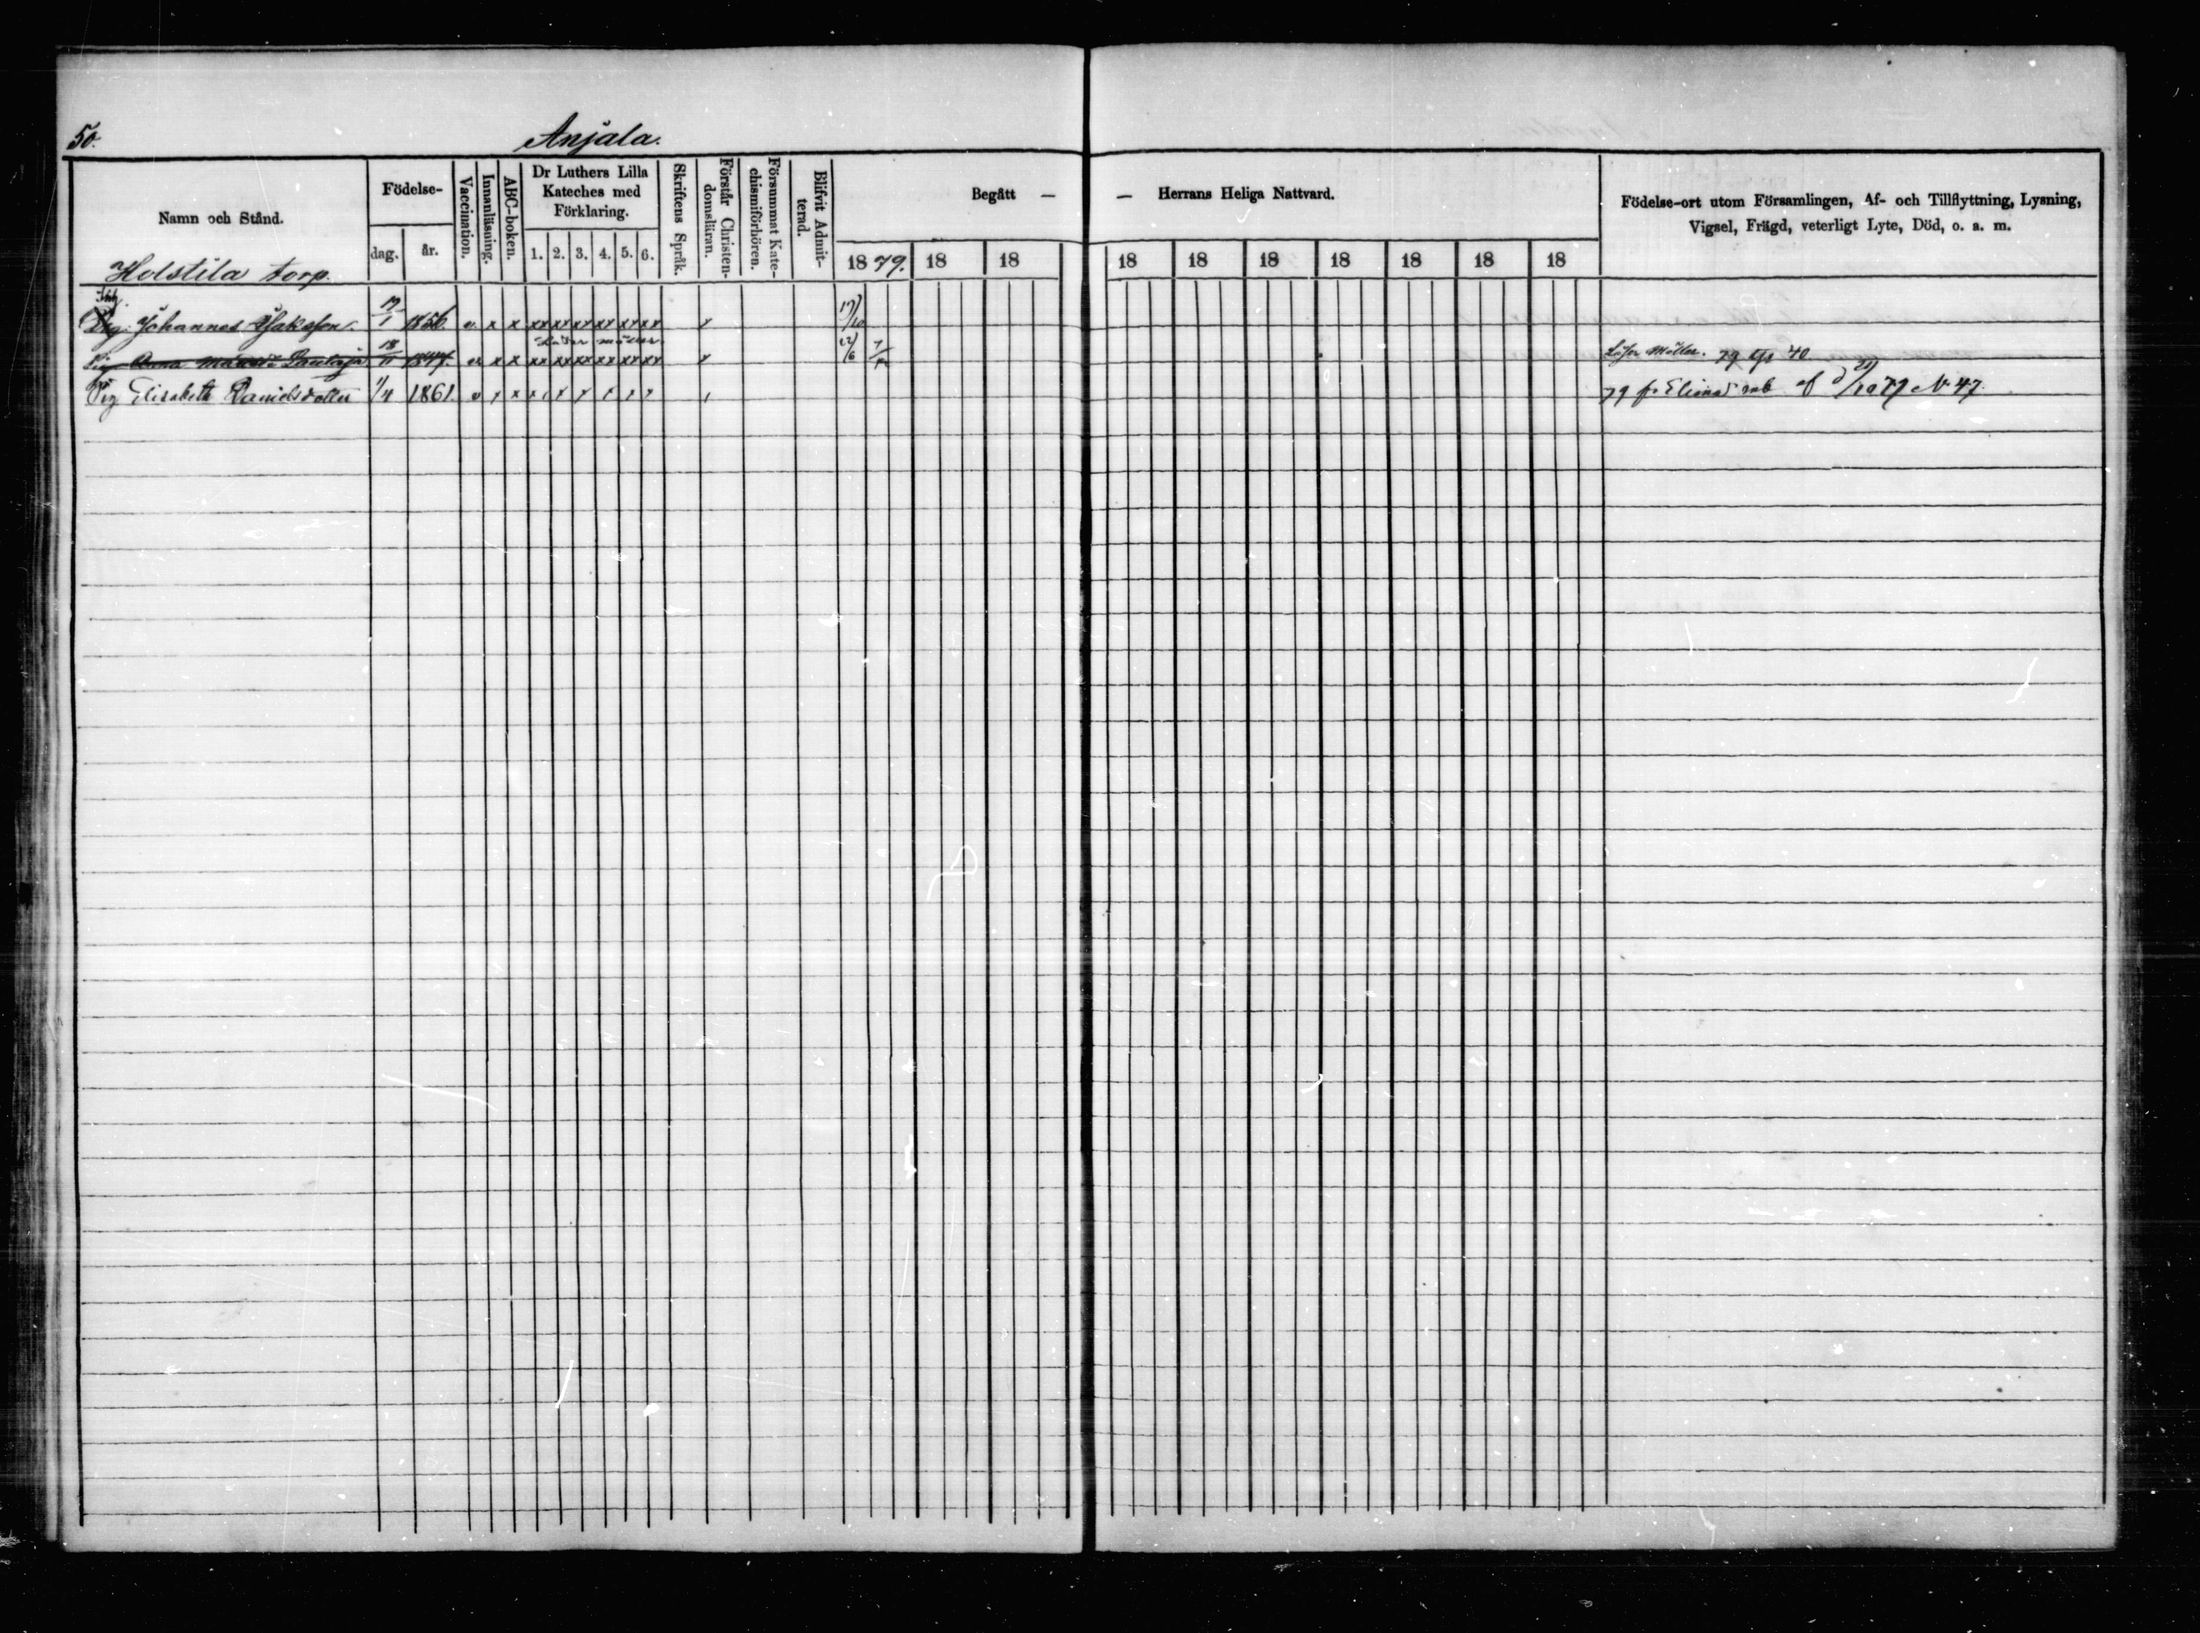 50.
Anjala.
Namn och Stånd.
Födelse-
dag.
år.
Vaccination.
Innanläsning.
ABC-boken.
Dr Luthers Lilla
Kateches med
Förklaring.
1. 2. 3. 4. 5. 6.
Skriftens Språk.
Förstår Christen-
domsläran.
Försummat Kate-
chismiförhören.
Blifvit Admit-
terad.
Begått — — Herrans Heliga Nattvard.
1879. 18 18 18 18 18 18 18 18 18
Födelse-ort utom Församlingen, Af- och Tillflyttning, Lysning,
Vigsel, Frägd, veterligt Lyte, Död, o. a. m.
Holstila torp.
Drg. Johannes 17/1 1856. v x x xx xx xx xx xx xx x 17/10
Pig Anna 18/11 v x x xx xx xx xx xx xx x 22/6 79 40
Pig Elisabeth Danielsdotter 1/4 1861 v x x x x x x x x 79 fr Elimä 79 N 47.